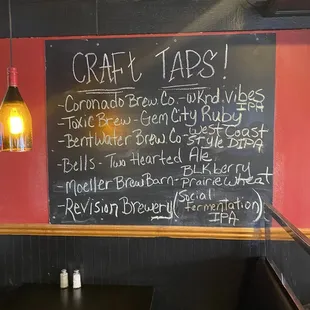 CRAFT TAPS!
-Coronado Brew Co.-wKnd.vibes IPA
-Toxic Brew-Gem City Ruby
-BentWater Brew Co-West Coast Style DIPA
-Bells-Two Hearted Ale
-Moeller Brew Barn-BLKberry Prairie Wheat
-Revision Brewery (Social fermentation) IPA